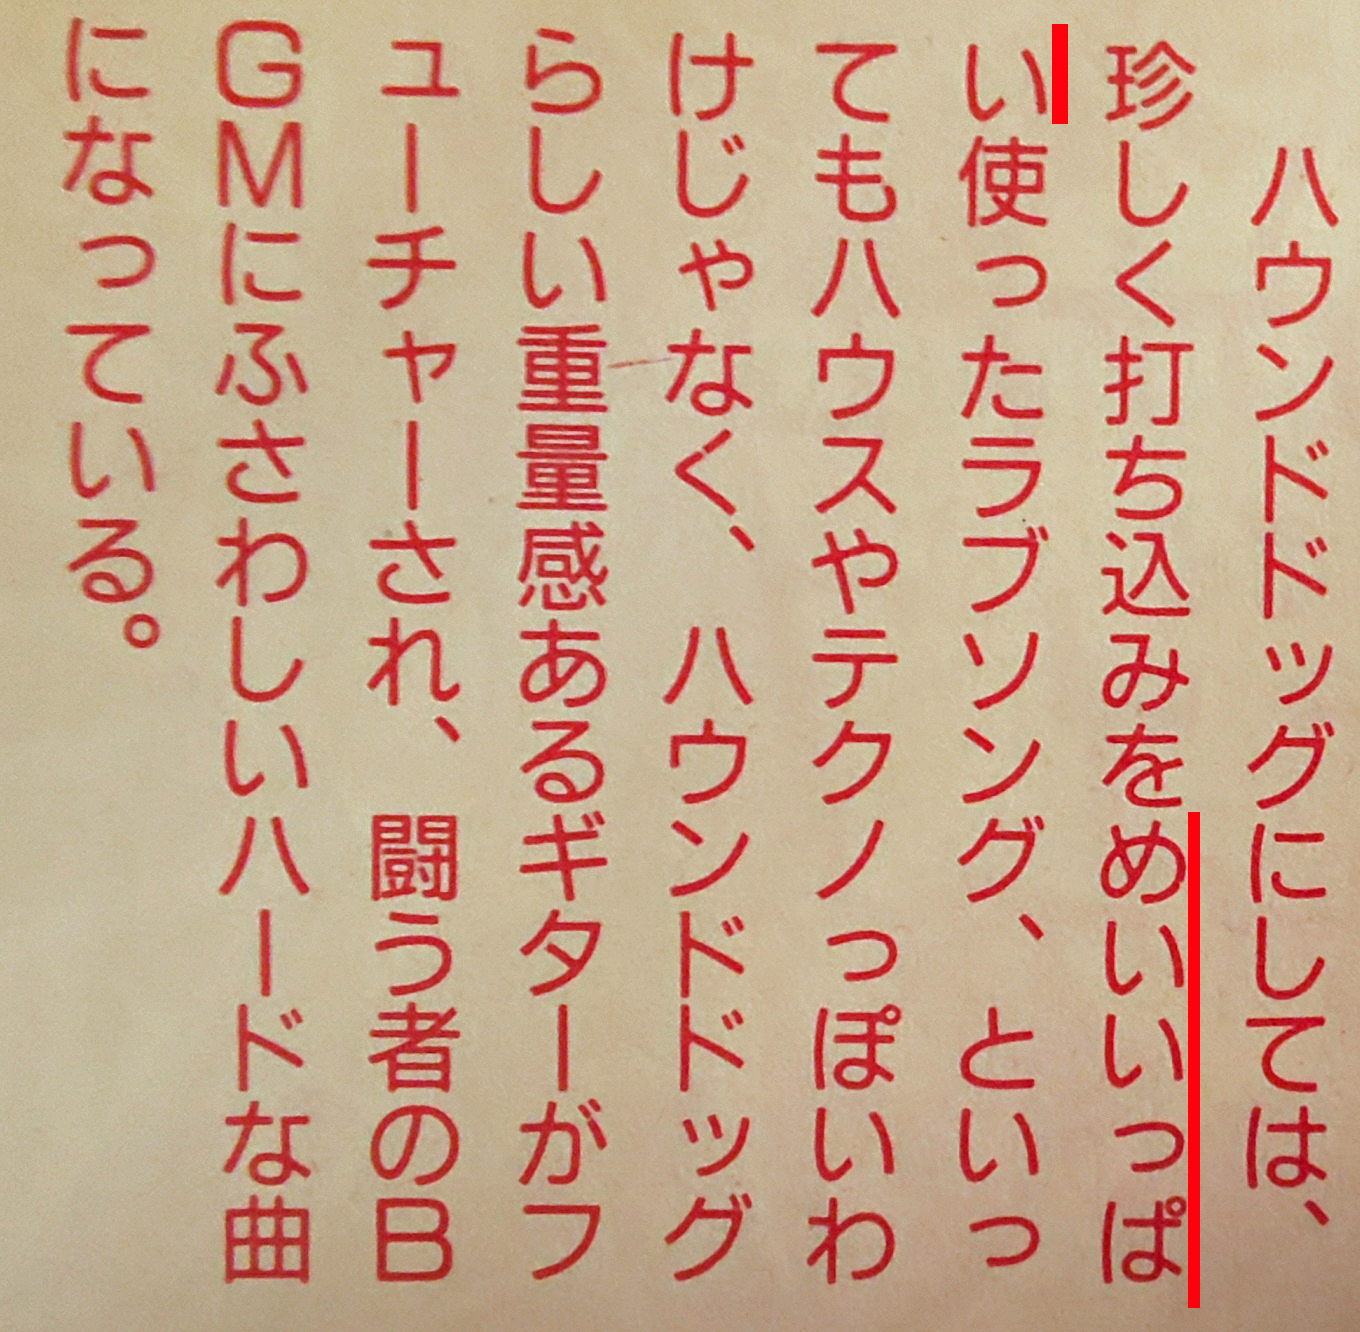 ハウンドドッグにしては、
珍しく打ち込みをめいいっぱ
い使ったラブソング、といっ
てもハウスやテクノっぽいわ
けじゃなく、ハウンドドッグ
らしい重量感あるギターがフ
ューチャーされ、闘う者のB
GMにふさわしいハードな曲
になっている。